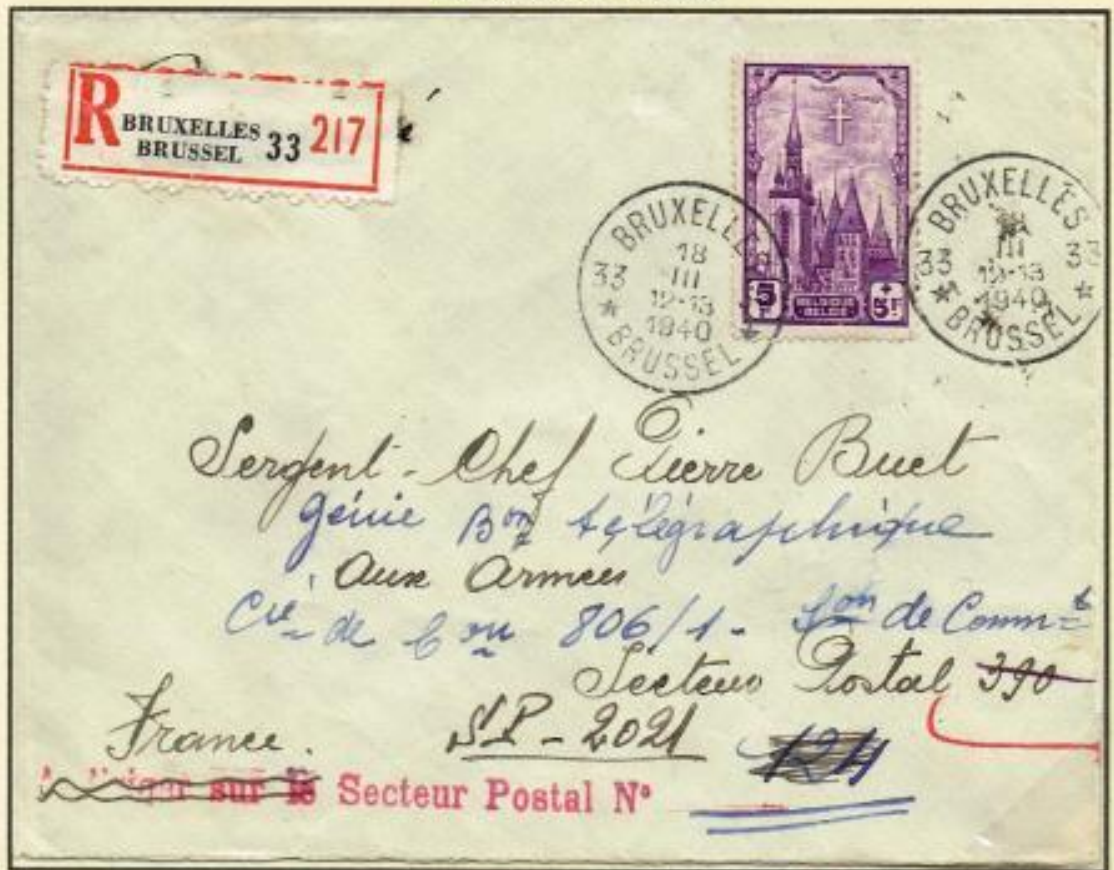 R BRUXELLES BRUSSEL 33 217
BRUXELLES
18
III
12-13
1940
33
BRUSSEL
5F
BELGIQUE
BELGIË
+5F
BRUXELLES
33 33
III
12-13
1940
BRUSSEL
Sergent-Chef Pierre Buet
Génie Bon télégraphique
aux Armées
Cie de 806/1 - de Commt
Secteur Postal 390
France. S.P - 2021 124
sur le Secteur Postal N°